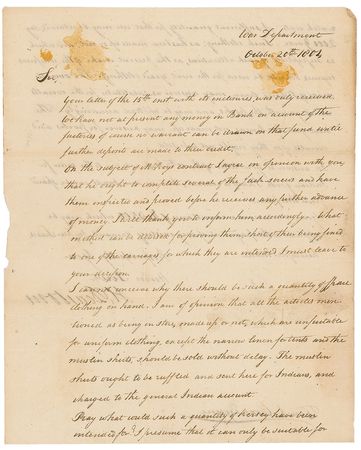 War Department
October 20th 1802,
Sir,
Your letter of the 15th inst with its enclosures, was duly received.
We have not at present any money in Bank on account of the
factories of course no warrant can be drawn on that fund until
further deposits are made to their credit.
On the subject of contract I agree in opinion with you,
that he ought to complete several of the Jack screws and have
them inspected and proved before he receives any further advance
of money. I will thank you to inform him accordingly. What
method can be devised for proving them, short of their being fixed
to one of the carriages for which they are intended I must leave to
your decision.
I cannot conceive why there should be such a quantity of spare
clothing on hand. I am of opinion that all the articles men-
tioned as being in store, made up or not, which are unsuitable
for uniform clothing, except the narrow linen for tents and the
muslin shirts, should be sold without delay. The muslin
shirts ought to be ruffled and sent here for Indians, and
charged to the general Indian account.
Pray what could such a quantity of kersey have been
intended for? I presume that it can only be suitable for